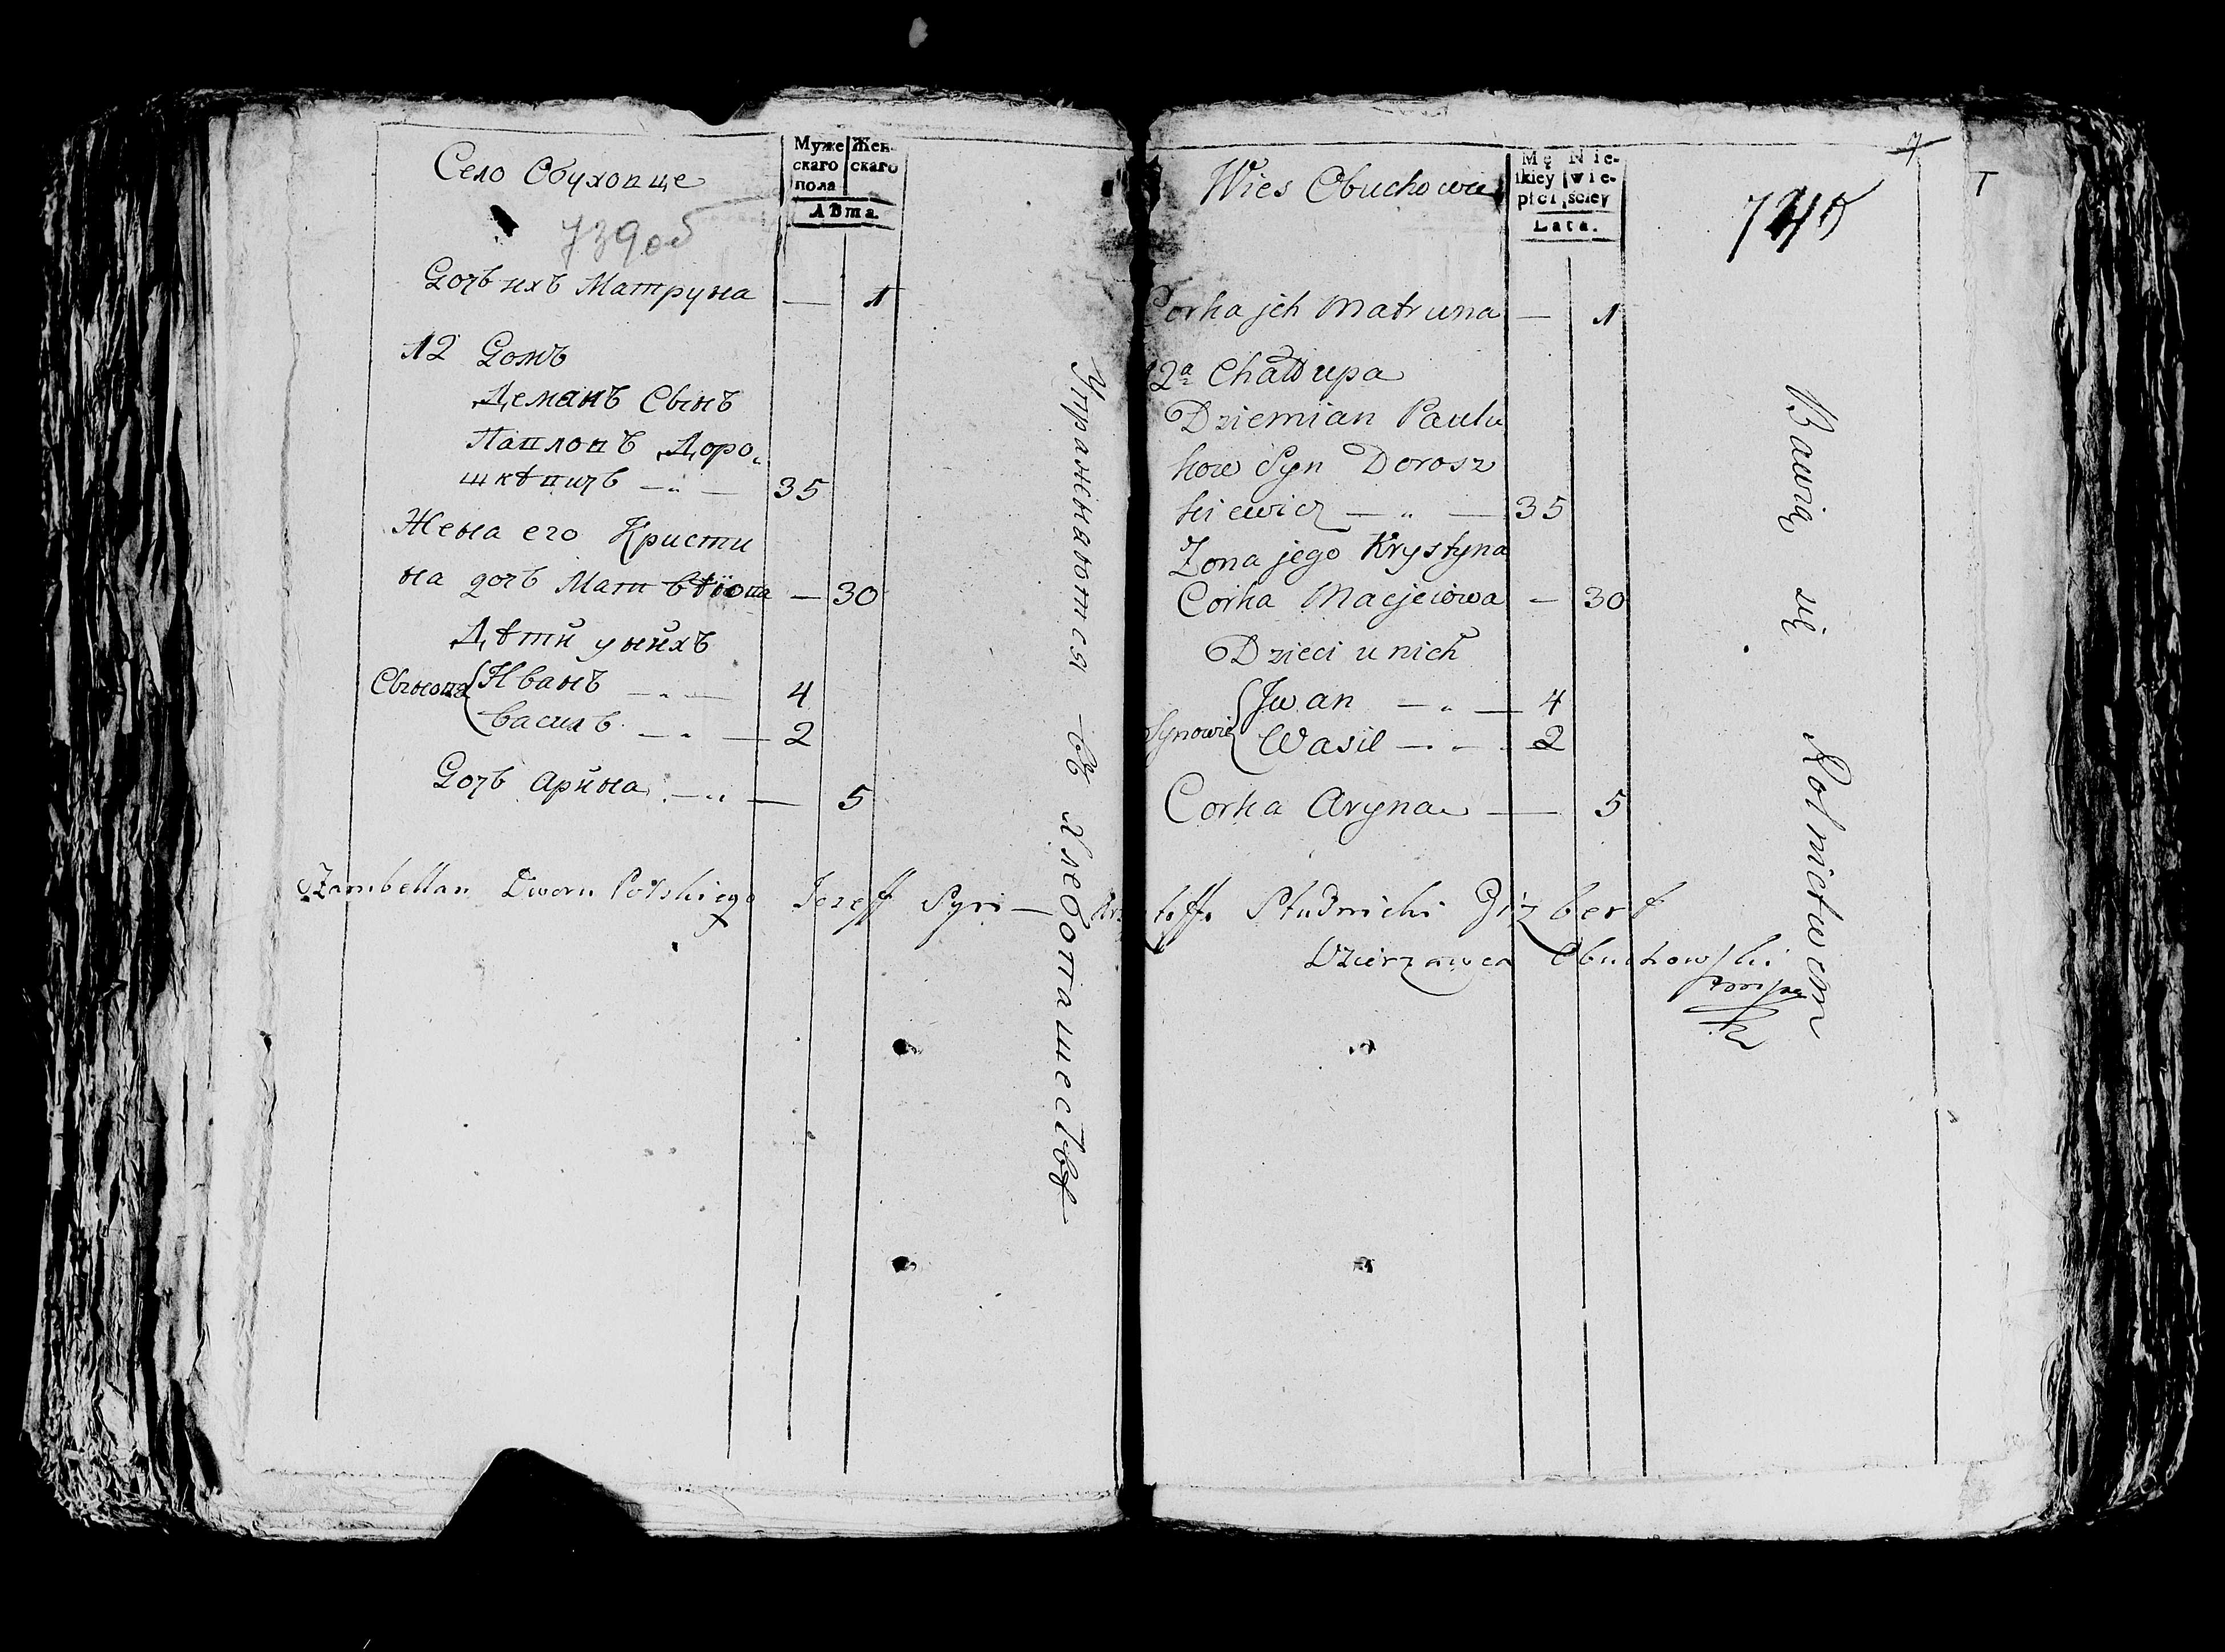 Село Обуховце
Муже
скаго
пола
Жен
скаго
Лѣта
739об
Дочь ихъ Матруна — 1
12 Домъ
Деманъ Сынъ
Павловъ Доро
шкѣвичъ — 35
Жена его Кристи
на дочь Матвѣйова — 30
Дѣти у нихъ
Сынова { Иванъ — 4
Василь — 2
Дочь Арина — 5
Упражняются въ хлебопашествѣ
Wies Obuchowce
Mę
ſkiey
płci
Nie-
wie-
sciey
Lata.
7
740
T
Corka jch Matruna — 1
12a Chałupa
Dziemian Pawlu
kow Syn Dorosz
kiewicz — 35
Zona jego Krystyna
Corka Macjeiowa — 30
Dzieci u nich
Synowie { Jwan — 4
Wasil — 2
Corka Aryna — 5
Bawią się Rolnictwem
Szambellan Dworu Polskiego Jozeff Syn Krzysztoffa Studnicki Gizbert
Dzierzawca Obuchowski